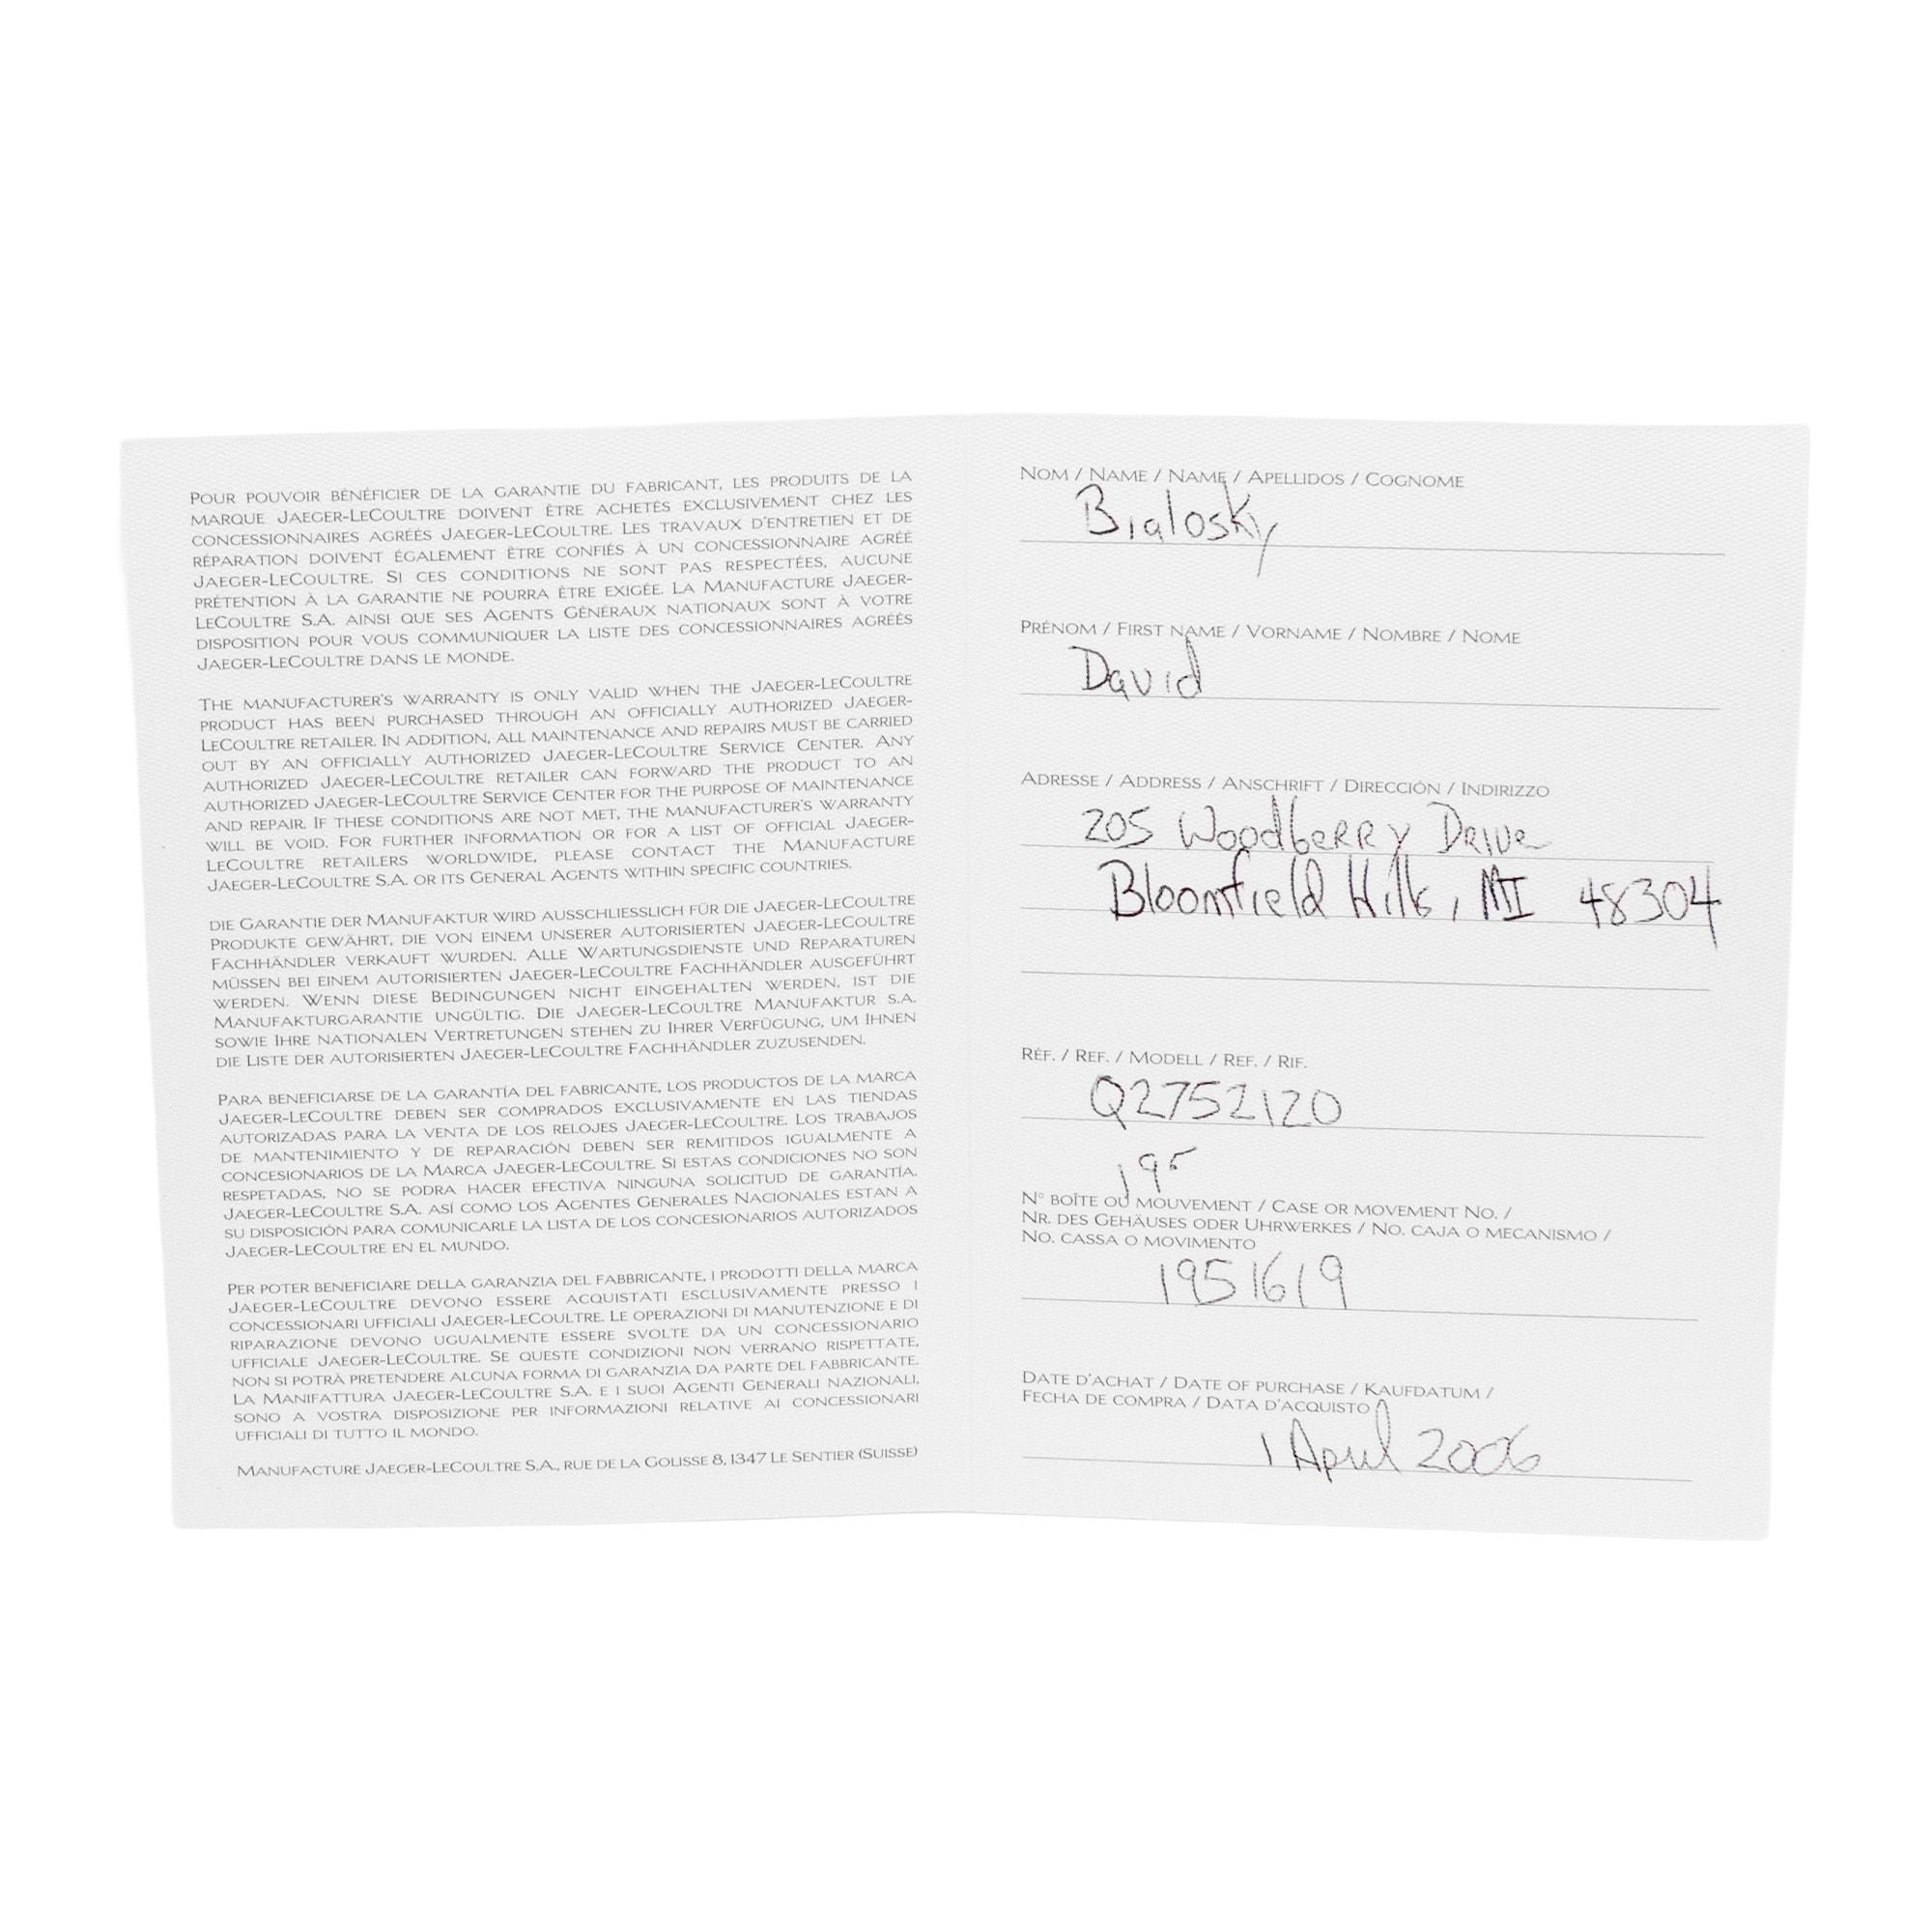 POUR POUVOIR BÉNÉFICIER DE LA GARANTIE DU FABRICANT, LES PRODUITS DE LA
MARQUE JAEGER-LECOULTRE DOIVENT ÊTRE ACHETÉS EXCLUSIVEMENT CHEZ LES
CONCESSIONNAIRES AGRÉÉS JAEGER-LECOULTRE. LES TRAVAUX D'ENTRETIEN ET DE
RÉPARATION DOIVENT ÉGALEMENT ÊTRE CONFIÉS À UN CONCESSIONNAIRE AGRÉÉ
JAEGER-LECOULTRE. SI CES CONDITIONS NE SONT PAS RESPECTÉES, AUCUNE
PRÉTENTION À LA GARANTIE NE POURRA ÊTRE EXIGÉE. LA MANUFACTURE JAEGER-
LECOULTRE S.A. AINSI QUE SES AGENTS GÉNÉRAUX NATIONAUX SONT À VOTRE
DISPOSITION POUR VOUS COMMUNIQUER LA LISTE DES CONCESSIONNAIRES AGRÉÉS
JAEGER-LECOULTRE DANS LE MONDE.
THE MANUFACTURER'S WARRANTY IS ONLY VALID WHEN THE JAEGER-LECOULTRE
PRODUCT HAS BEEN PURCHASED THROUGH AN OFFICIALLY AUTHORIZED JAEGER-
LECOULTRE RETAILER. IN ADDITION, ALL MAINTENANCE AND REPAIRS MUST BE CARRIED
OUT BY AN OFFICIALLY AUTHORIZED JAEGER-LECOULTRE SERVICE CENTER. ANY
AUTHORIZED JAEGER-LECOULTRE RETAILER CAN FORWARD THE PRODUCT TO AN
AUTHORIZED JAEGER-LECOULTRE SERVICE CENTER FOR THE PURPOSE OF MAINTENANCE
AND REPAIR. IF THESE CONDITIONS ARE NOT MET, THE MANUFACTURER'S WARRANTY
WILL BE VOID. FOR FURTHER INFORMATION OR FOR A LIST OF OFFICIAL JAEGER-
LECOULTRE RETAILERS WORLDWIDE, PLEASE CONTACT THE MANUFACTURE
JAEGER-LECOULTRE S.A. OR ITS GENERAL AGENTS WITHIN SPECIFIC COUNTRIES.
DIE GARANTIE DER MANUFAKTUR WIRD AUSSCHLIESSLICH FÜR DIE JAEGER-LECOULTRE
PRODUKTE GEWÄHRT, DIE VON EINEM UNSERER AUTORISIERTEN JAEGER-LECOULTRE
FACHHÄNDLER VERKAUFT WURDEN. ALLE WARTUNGSDIENSTE UND REPARATUREN
MÜSSEN BEI EINEM AUTORISIERTEN JAEGER-LECOULTRE FACHHÄNDLER AUSGEFÜHRT
WERDEN. WENN DIESE BEDINGUNGEN NICHT EINGEHALTEN WERDEN, IST DIE
MANUFAKTURGARANTIE UNGÜLTIG. DIE JAEGER-LECOULTRE MANUFAKTUR S.A.
SOWIE IHRE NATIONALEN VERTRETUNGEN STEHEN ZU IHRER VERFÜGUNG, UM IHNEN
DIE LISTE DER AUTORISIERTEN JAEGER-LECOULTRE FACHHÄNDLER ZUZUSENDEN.
PARA BENEFICIARSE DE LA GARANTÍA DEL FABRICANTE, LOS PRODUCTOS DE LA MARCA
JAEGER-LECOULTRE DEBEN SER COMPRADOS EXCLUSIVAMENTE EN LAS TIENDAS
AUTORIZADAS PARA LA VENTA DE LOS RELOJES JAEGER-LECOULTRE. LOS TRABAJOS
DE MANTENIMIENTO Y DE REPARACIÓN DEBEN SER REMITIDOS IGUALMENTE A
CONCESIONARIOS DE LA MARCA JAEGER-LECOULTRE. SI ESTAS CONDICIONES NO SON
RESPETADAS, NO SE PODRA HACER EFECTIVA NINGUNA SOLICITUD DE GARANTÍA.
JAEGER-LECOULTRE S.A. ASÍ COMO LOS AGENTES GENERALES NACIONALES ESTAN A
SU DISPOSICIÓN PARA COMUNICARLE LA LISTA DE LOS CONCESIONARIOS AUTORIZADOS
JAEGER-LECOULTRE EN EL MUNDO.
PER POTER BENEFICIARE DELLA GARANZIA DEL FABBRICANTE, I PRODOTTI DELLA MARCA
JAEGER-LECOULTRE DEVONO ESSERE ACQUISTATI ESCLUSIVAMENTE PRESSO I
CONCESSIONARI UFFICIALI JAEGER-LECOULTRE. LE OPERAZIONI DI MANUTENZIONE E DI
RIPARAZIONE DEVONO UGUALMENTE ESSERE SVOLTE DA UN CONCESSIONARIO
UFFICIALE JAEGER-LECOULTRE. SE QUESTE CONDIZIONI NON VERRANO RISPETTATE,
NON SI POTRÀ PRETENDERE ALCUNA FORMA DI GARANZIA DA PARTE DEL FABBRICANTE.
LA MANIFATTURA JAEGER-LECOULTRE S.A. E I SUOI AGENTI GENERALI NAZIONALI,
SONO A VOSTRA DISPOSIZIONE PER INFORMAZIONI RELATIVE AI CONCESSIONARI
UFFICIALI DI TUTTO IL MONDO.
MANUFACTURE JAEGER-LECOULTRE S.A., RUE DE LA GOLISSE 8, 1347 LE SENTIER (SUISSE)
NOM / NAME / NAME / APELLIDOS / COGNOME
Bialosky
PRÉNOM / FIRST NAME / VORNAME / NOMBRE / NOME
David
ADRESSE / ADDRESS / ANSCHRIFT / DIRECCIÓN / INDIRIZZO
205 Woodberry Drive
Bloomfield Hills, MI 48304
RÉF. / REF. / MODELL / REF. / RIF.
Q2752120
195
N° BOÎTE OU MOUVEMENT / CASE OR MOVEMENT NO. /
NR. DES GEHÄUSES ODER UHRWERKES / NO. CAJA O MECANISMO /
NO. CASSA O MOVIMENTO
1951619
DATE D'ACHAT / DATE OF PURCHASE / KAUFDATUM /
FECHA DE COMPRA / DATA D'ACQUISTO
1 April 2006